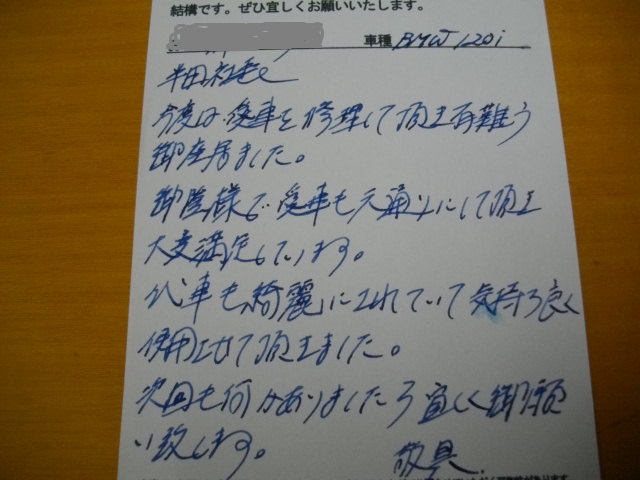 結構です。ぜひ宜しくお願いいたします。
車種 BMW 120i
半田社長
今度は愛車を修理して頂き有難う
御座居ました。
御陰様で愛車も元通りにして頂き
大変満足しています。
代車も綺麗にされていて気持ち良く
使用させて頂きました。
次回も何かありましたら宜しく御願
い致します。
敬具